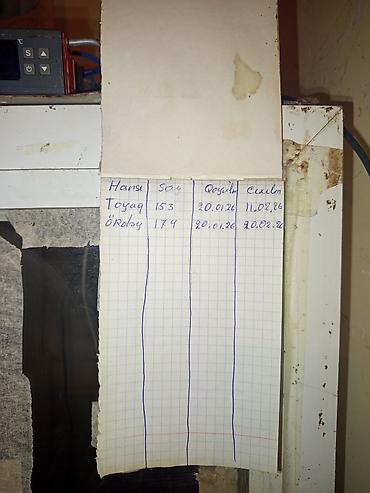 °C
S
Hansı Say Qoyulm Cıxılm
Toyuq 153 20.01.26 11.02.26
Ördəy 174 20.01.26 20.02.26